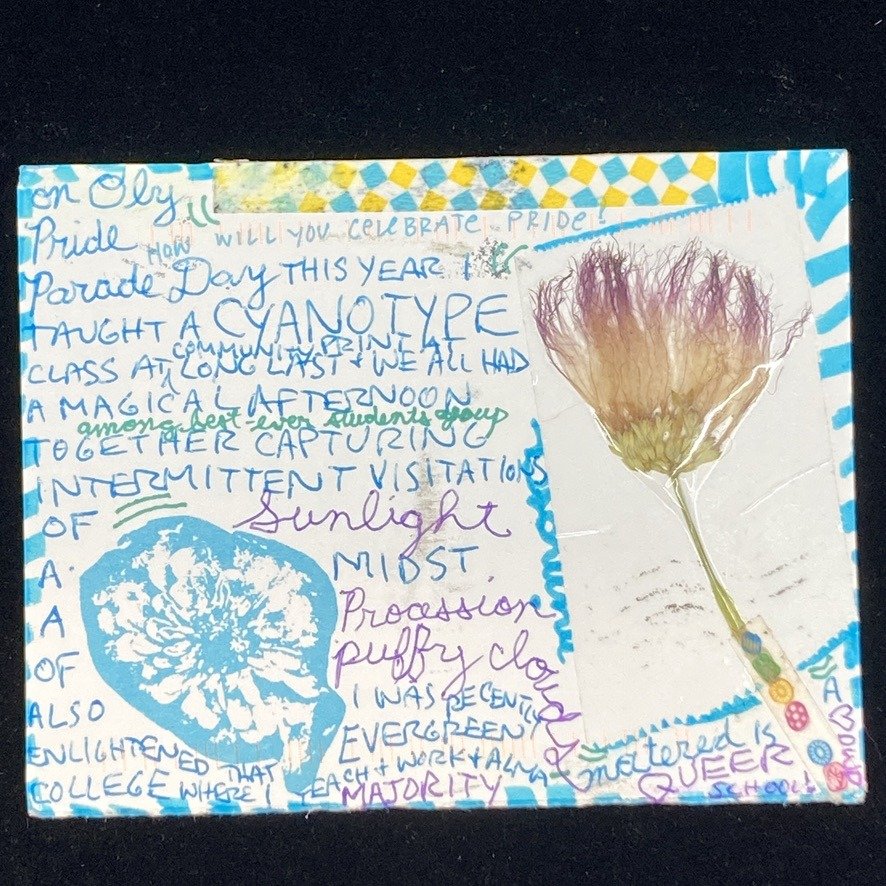 on Oly
Pride
HOW WILL YOU CELEBRATE PRIDE!
Parade Day THIS YEAR I
TAUGHT A CYANOTYPE
COMMUNITY PRINT AT
CLASS AT LONG LAST + WE ALL HAD
A MAGICAL AFTERNOON
among best ever students group
TOGETHER CAPTURING
INTERMITTENT VISITATIONS
OF Sunlight
A. MIDST
A Procession
OF puffy clouds
ALSO I WAS RECENTLY
ENLIGHTENED THAT EVERGREEN
COLLEGE WHERE I TEACH + WORK + ALMA
matered is
MAJORITY QUEER
SCHOOL!
A